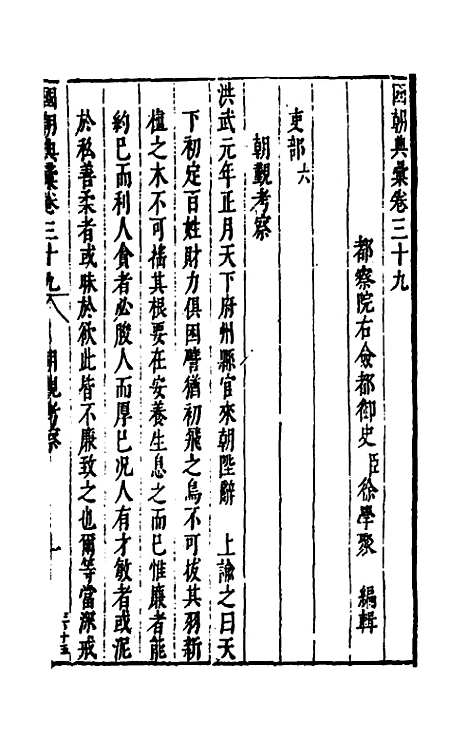 國朝典彙卷三十九
都察院右僉都御史臣徐學聚 編輯
吏部六
朝覲考察
洪武元年正月天下府州縣官來朝陛辭 上諭之曰天
下初定百姓財力俱困譬猶初飛之鳥不可拔其羽新
植之木不可搖其根要在安養生息之而已惟廉者能
約已而利人貪者必朘人而厚已況人有才敏者或泥
於私善柔者或昧於欲此皆不廉致之也爾等當深戒
國朝典彙卷三十九 朝覲考察